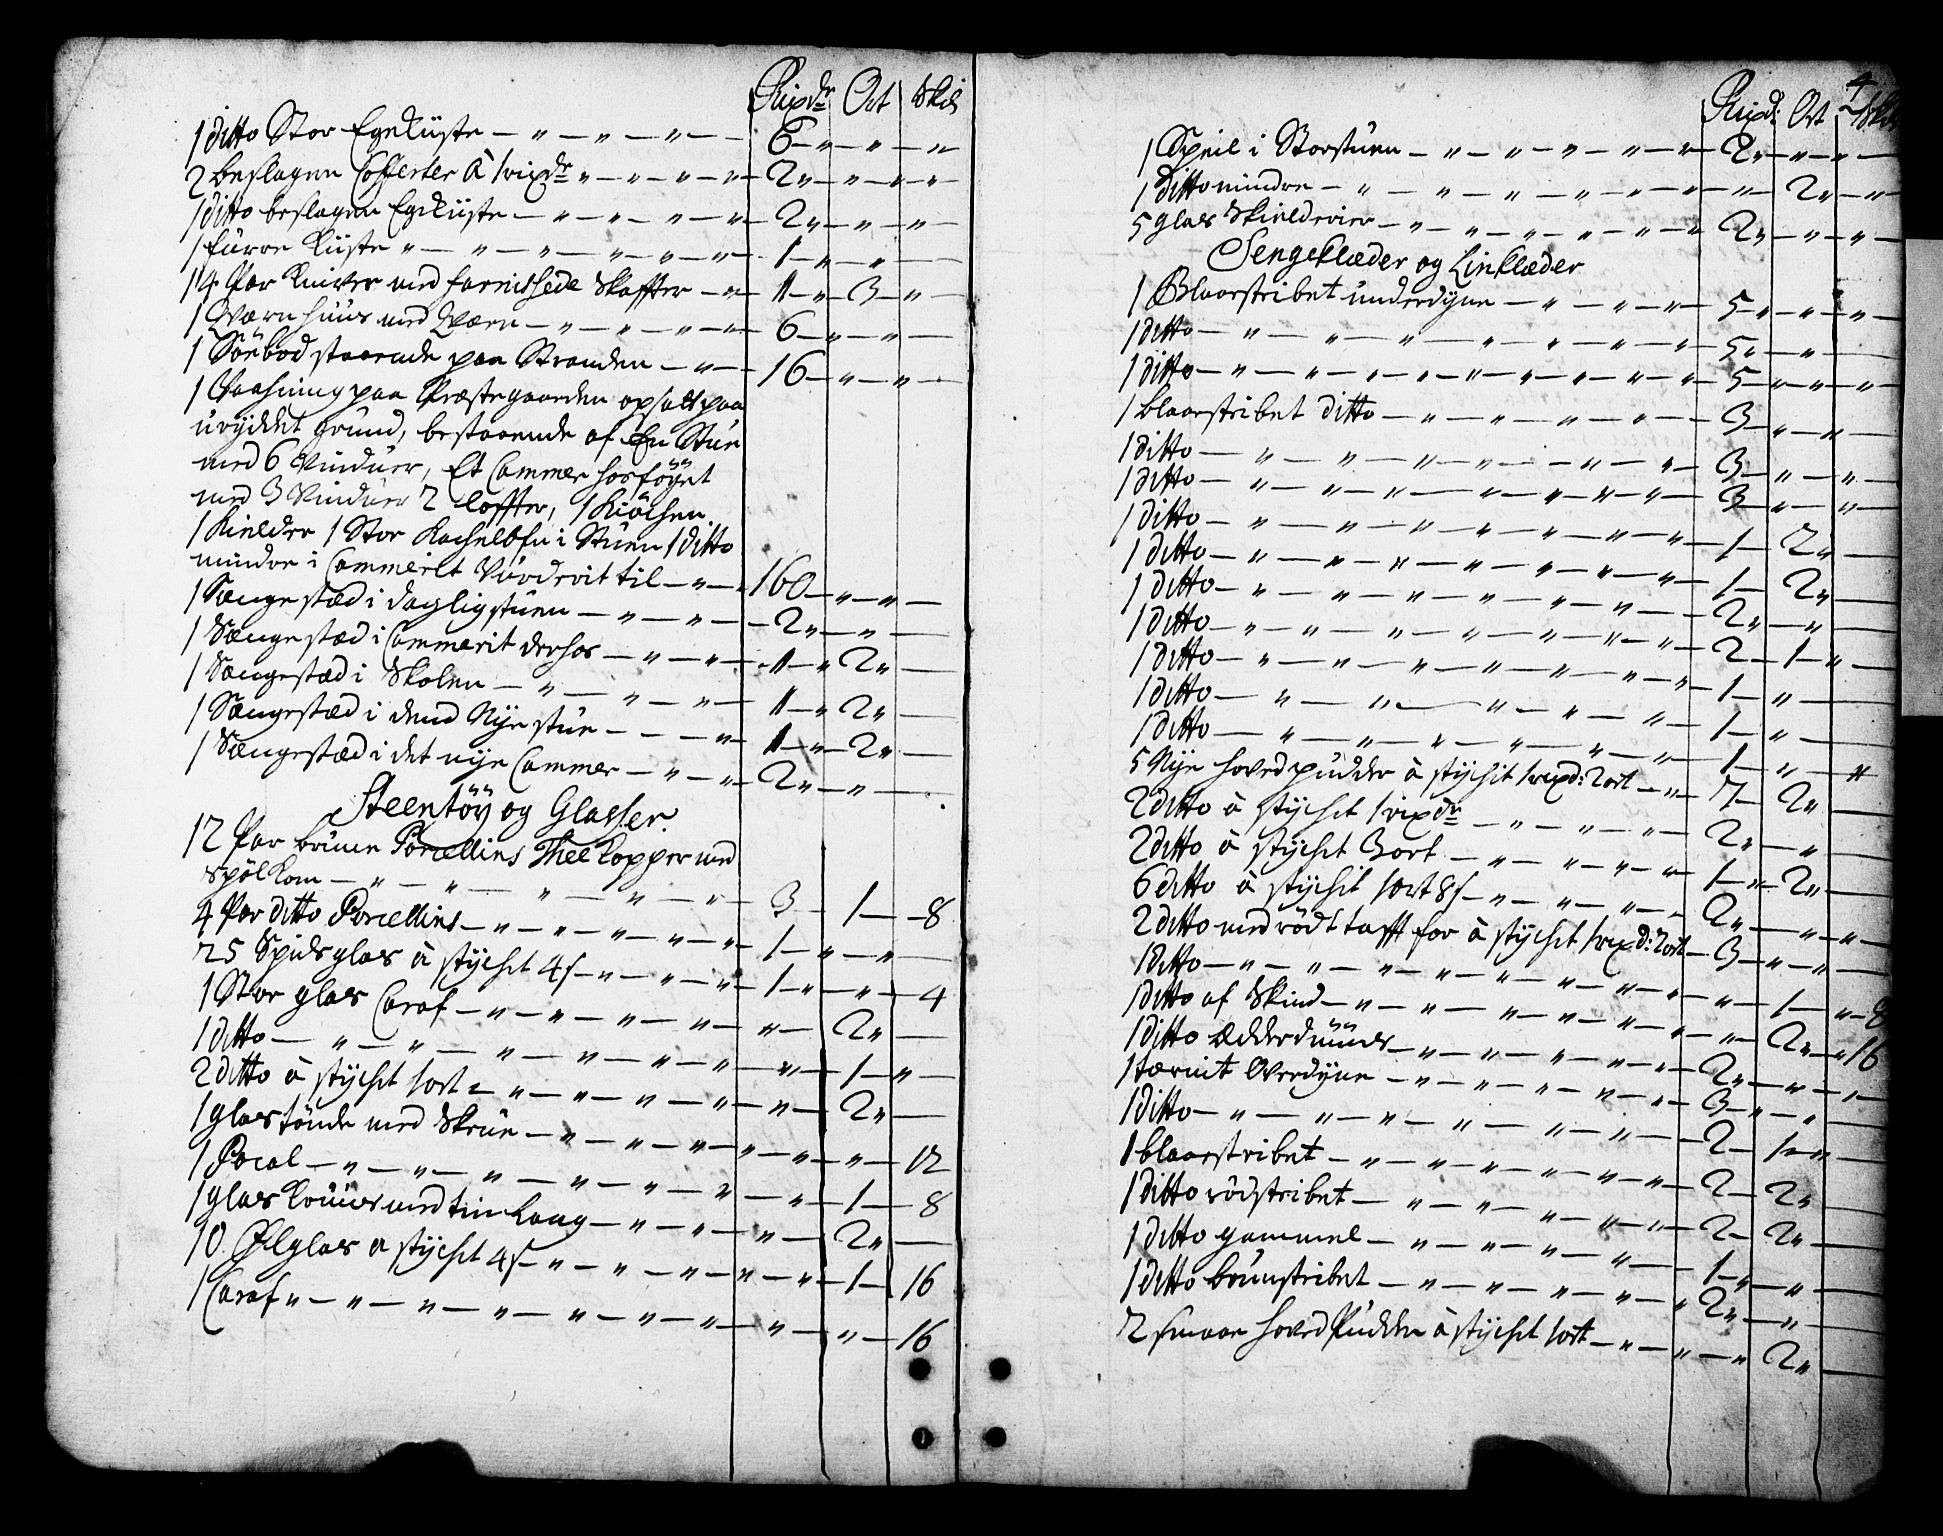 Rixdr Ort Skil
1 ditto Stor Egekiiste — 6 — " — "
2 beslagen Cofferter à 1 rixdr — 2 " — " — "
1 ditto beslagen Egekiiste — 2 " — " — "
1 furre Kiiste — 1 — " — "
14 Par Kniver med fernissede Skaffter — 1 — " 3 — "
1 Qværnhuus med Qværn — 6 — " — "
1 Söebod staaende paa Stranden — 16 — " — "
1 Vaaning paa Præstegaarden opsatt paa
uryddet grund, bestaaende af En Stue
med 6 Vinduer, Et Cammer hosföyet
med 3 Vinduer 2 loffter, 1 Kiöchen
1 Kielder 1 Stor Kachelofn i Stuen 1 ditto
mindre i Cammeret Vurderit til — 160 — " — "
1 Sengestæd i dagligstuen — 2 " — "
1 Sængestæd i Cammerit derhos — 1 — " 2 "
1 Sængestæd i Skolen — 1 — " 2 "
1 Sængestæd i dend Nye stue — 1 — " 2 "
1 Sængestæd i det nye Cammer — 2 " — "
Steentöy og Glasser.
12 Par brune Porcellins Thee kopper med
spölkom — 3 — 1 — 8
4 Par ditto Porcellins — 1 — " — "
25 Spidsglas à stychet 4 s — 1 — " — " 4
1 Stor glas Caraf — " — 2 "
1 ditto — " — 1 — "
2 ditto à stychet 1 ort — " — 2 "
1 glastönde med Skrue — " — " — 12
1 Pocal — " — 1 — 8
1 glas Kruus med tin Laag — " — 2 "
10 Ölglas a stychet 4 s — " — 1 — 16
1 Caraf — " — " — 16
4
Rixd: Ort Skil
1 Speil i Storstuen — 2 " — " — "
1 ditto mindre — " 2 " — "
5 glas Skilderier — 2 " — " — "
Sengeklæder og Linklæder
1 Blaarstribet underdyne — 5 — " — " — "
1 ditto — 5 " — "
1 ditto — 5 — " — " — "
1 blaarstribet ditto — 3 — " — "
1 ditto — 3 — " — "
1 ditto — 3 — " — "
1 ditto — 1 — 2 "
1 ditto — 1 — 2 "
1 ditto — 2 " — "
1 ditto — 2 — 1 — "
1 ditto — 1 — "
1 ditto — 1 — "
1 ditto — 1 — " — "
5 Nye hovedpudder à stychit 1 rixd: 2 ort — 7 — 2 "
2 ditto à stychit 1 rixdr — 2 " — "
2 ditto à stychit 3 ort — 1 — " 2 "
6 ditto à stychit 1 ort 8 s — 2 " — " — "
2 ditto med rödt tafft for à stychet 1 rixd: 2 ort — 3 — " — "
1 ditto — " — 1 — " 8
1 ditto af Skind — " — 2 " — 16
1 ditto Ædderduuns — 2 " — " — "
1 tærnit Overdyne — 3 — " — "
1 ditto — 2 — 1 — "
1 blaarstribet — 2 — 2 "
1 ditto rödstribet — 2 — 2 "
1 ditto gammel — 1 — " — "
1 ditto bruunstribet — 2 " — "
2 smaae hoved Pudder à stychet 1 ort — " — 2 "